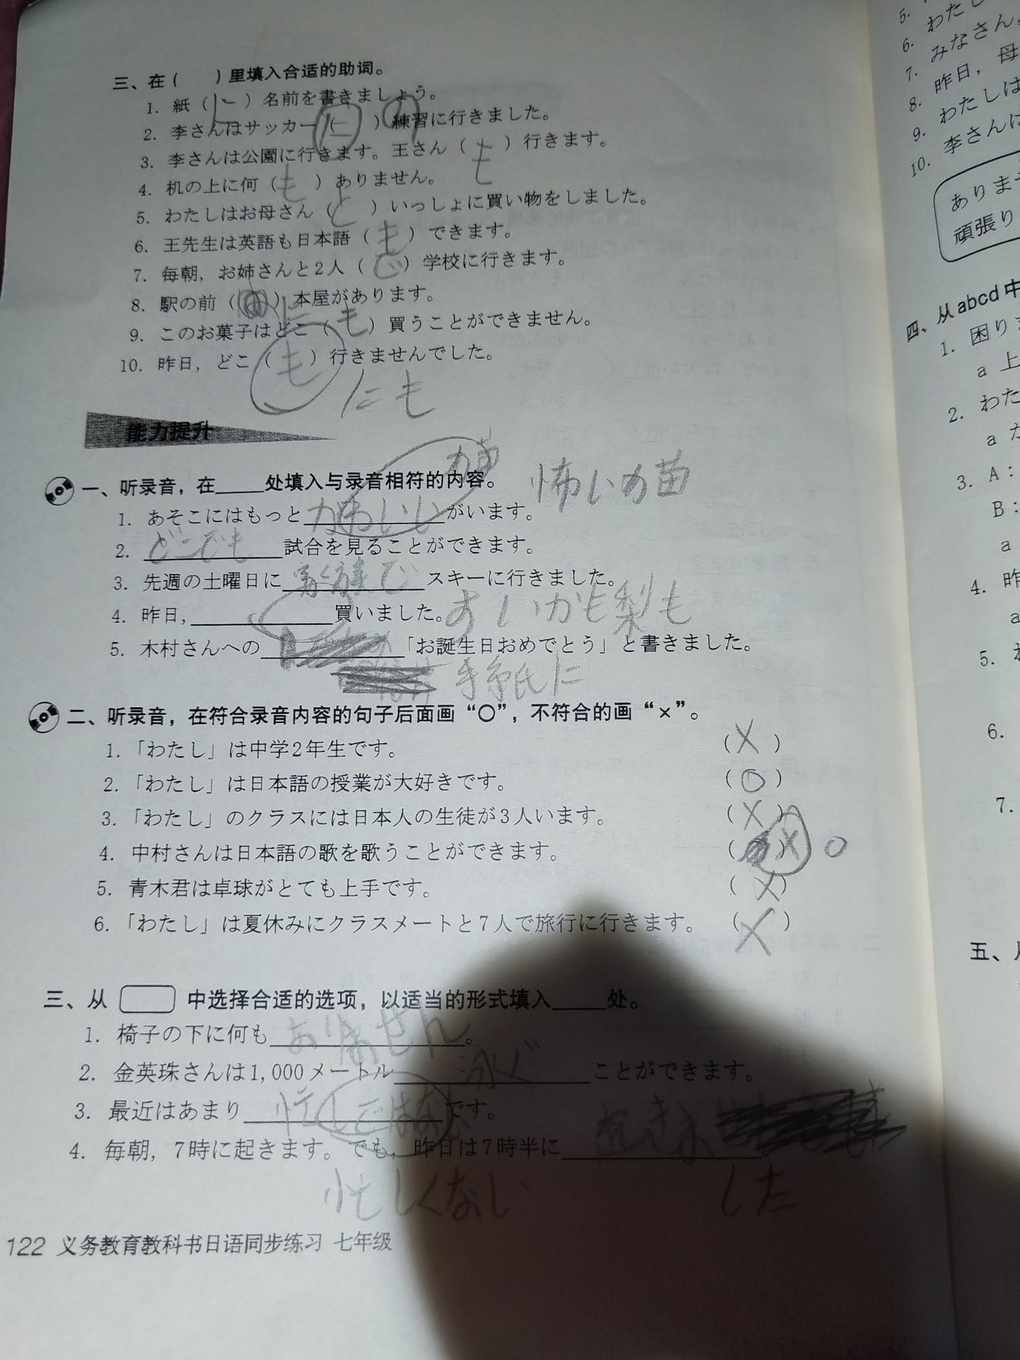 三、在（　　）里填入合适的助词。
1. 紙（に）名前を書きましょう。
2. 李さんはサッカー（に）の練習に行きました。
3. 李さんは公園に行きます。王さん（も）行きます。
4. 机の上に何（も）ありません。
5. わたしはお母さん（と）いっしょに買い物をしました。
6. 王先生は英語も日本語（も）できます。
7. 毎朝，お姉さんと2人（で）学校に行きます。
8. 駅の前（に）本屋があります。
9. このお菓子はどこ（にも）買うことができません。
10. 昨日，どこ（も）行きませんでした。
にも
能力提升
一、听录音，在____处填入与录音相符的内容。
怖いカ苗
1. あそこにはもっと____がいます。
2. どこでも試合を見ることができます。
3. 先週の土曜日に____でスキーに行きました。
4. 昨日，____買いました。すいかも梨も
5. 木村さんへの____「お誕生日おめでとう」と書きました。
手紙に
二、听录音，在符合录音内容的句子后面画“○”，不符合的画“×”。
1.「わたし」は中学2年生です。（×）
2.「わたし」は日本語の授業が大好きです。（○）
3.「わたし」のクラスには日本人の生徒が3人います。（×）
4. 中村さんは日本語の歌を歌うことができます。（×）○
5. 青木君は卓球がとても上手です。（×）
6.「わたし」は夏休みにクラスメートと7人で旅行に行きます。（×）
三、从 中选择合适的选项，以适当的形式填入____处。
1. 椅子の下に何もありません。
2. 金英珠さんは1,000メートル泳ぐことができます。
3. 最近はあまり忙しではなです。
4. 毎朝，7時に起きます。でも，昨日は7時半に起きま
忙しくない
した
122 义务教育教科书日语同步练习 七年级
5.
6. わたし
7. みなさん
8. 昨日，母
9. わたしは
10. 李さんは
ありませ
頑張り
四、从abcd中
1. 困り
a 上
2. わた
a
3. A：
B：
a
4. 昨
a
5.
6.
7.
五、